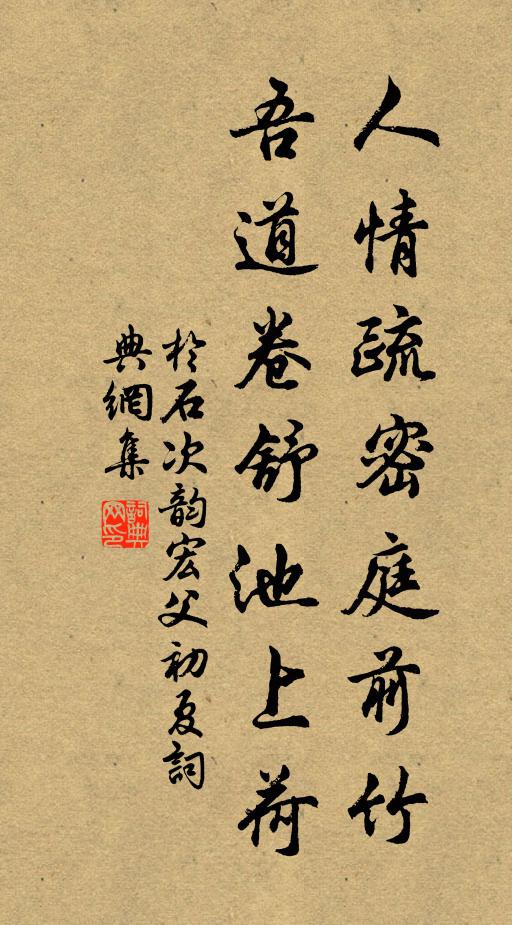 人情疏密庭前竹
吾道卷舒池上荷
於石次韵宏父初夏詞
典網集
詞典
网印